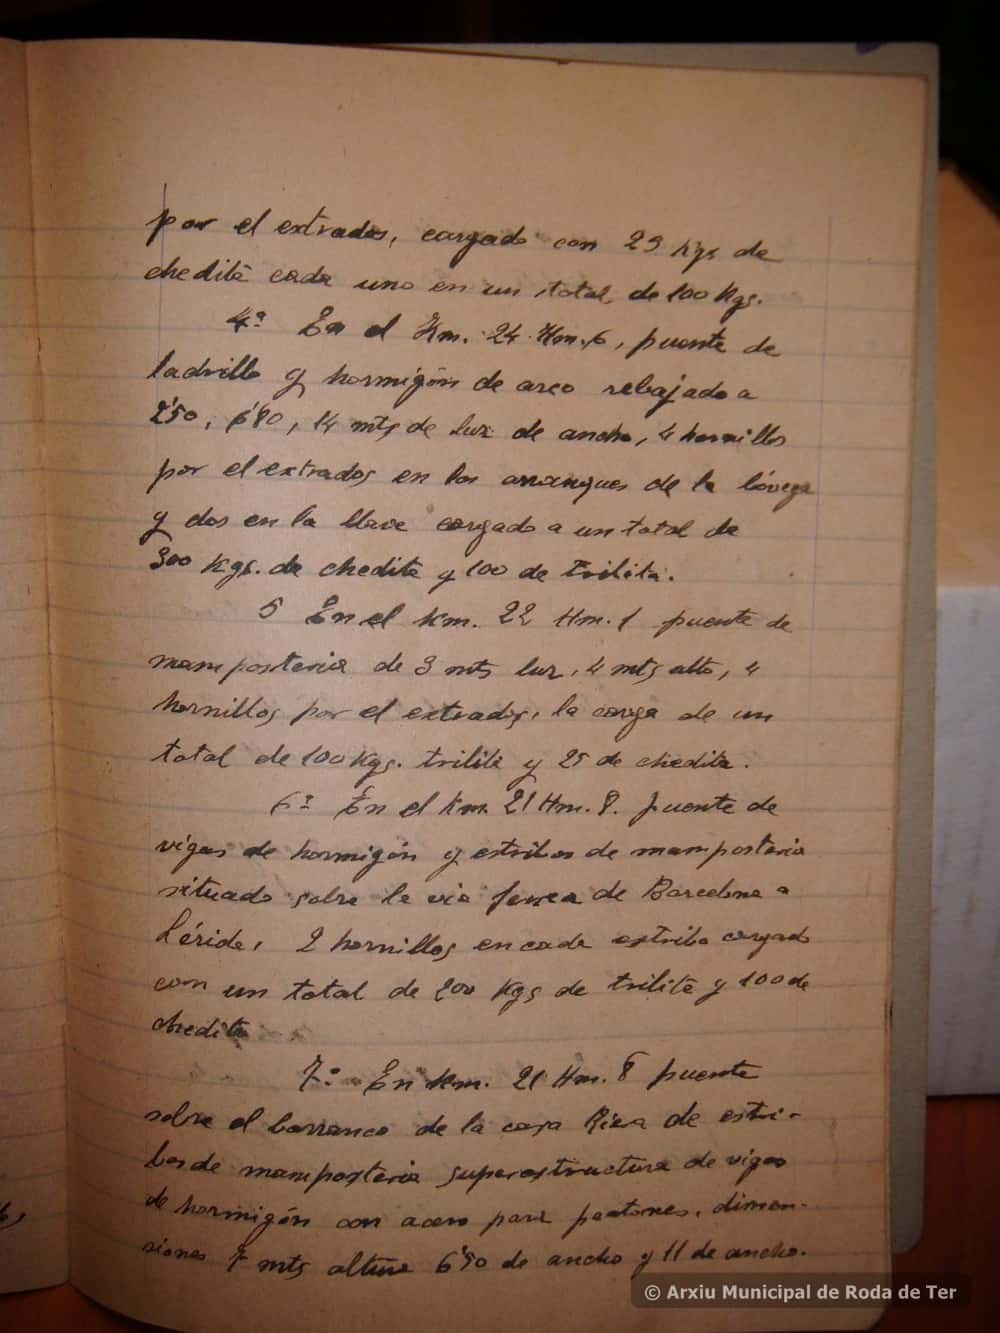 por el extrados, cargado con 25 Kgs de
chedita cada uno en un total de 100 Kgs.
4º En el Km. 24 Hm. 6, puente de
ladrillo y hormigón de arco rebajado a
6'80, 14 mts de luz de ancho, 4 hornillos
por el extrados en los arranques de la bóveda
y dos en la llave cargado a un total de
300 Kgs. de chedita y 100 de trilita.
5 En el Km. 22 Hm. 1 puente de
mamposteria de 3 mts luz, 4 mts alto, 4
hornillos por el extrados, la carga de un
total de 100 Kgs. trilita y 25 de chedita.
6º En el Km. 21 Hm. 8. puente de
vigas de hormigón y estribos de mamposteria
situado sobre la via ferrea de Barcelona a
Lérida, 2 hornillos en cada estribo cargado
con un total de 200 Kgs de trilita y 100 de
chedita
7º En Km. 21 Hm. 8 puente
sobre el barranco de la casa Riera de estri-
bos de mamposteria superestructura de vigas
de hormigón con acera para peatones, dimen-
siones 7 mts altura 6'50 de ancho y 11 de ancho.
© Arxiu Municipal de Roda de Ter